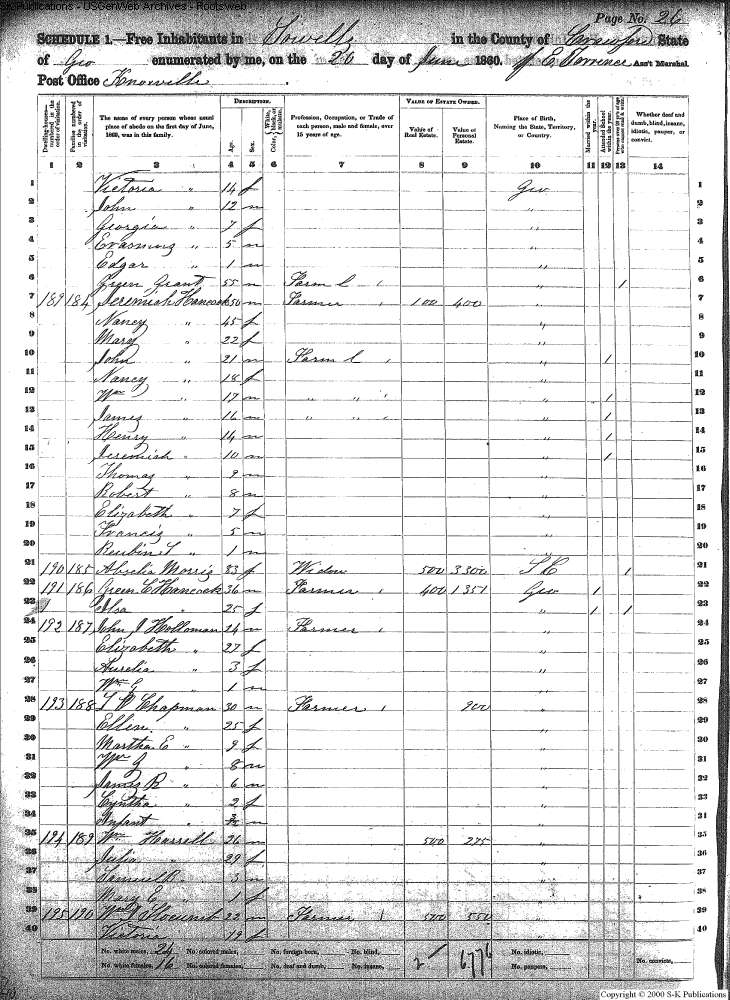 S-K Publications - USGenWeb Archives - Rootsweb
Page No. 26
SCHEDULE 1.—Free Inhabitants in Howells in the County of Crawford State
of Geo enumerated by me, on the 20 day of June 1860. J E Torrence Ass't Marshal.
Post Office Knoxville
DESCRIPTION. VALUE OF ESTATE OWNED.
Dwelling-houses—numbered in the order of visitation. Families numbered in the order of visitation. The name of every person whose usual place of abode on the first day of June, 1860, was in this family. Age. Sex. Color, White, black, or mulatto. Profession, Occupation, or Trade of each person, male and female, over 15 years of age. Value of Real Estate. Value of Personal Estate. Place of Birth, Naming the State, Territory, or Country. Married within the year. Attended School within the year. Whether deaf and dumb, blind, insane, idiotic, pauper, or convict.
1 2 3 4 5 6 7 8 9 10 11 12 13 14
1 Victoria " 14 f Geo 1
2 John " 12 m " 2
3 Georgia " 7 f " 3
4 Erasmus " 5 m " 4
5 Edgar " 1 m " 5
6 Green Grant 55 m Farm L " / 6
7 189 184 Jeremiah Hancock 50 m Farmer 100 400 " 7
8 Nancy " 45 f " 8
9 Mary " 22 f " 9
10 John " 21 m Farm L " / 10
11 Nancy " 18 f " 11
12 Wm " 17 m " " " / 12
13 James " 16 m " " " / 13
14 Henry " 14 m " / 14
15 Jeremiah " 10 m " / 15
16 Thomas " 9 m " 16
17 Robert " 8 m " 17
18 Elizabeth " 7 f " 18
19 Francis " 5 m " 19
20 Reubin T " 1 m " 20
21 190 185 Morris 83 f Widow 500 3300 S C / 21
22 191 186 Green C Hancock 36 m Farmer 400 1351 Geo / 22
23 " 25 f " / / 23
24 192 187 John J Holloman 24 m Farmer " 24
25 Elizabeth " 27 f " 25
26 Aurelia " 3 f " 26
27 Wm G " 1 m " 27
28 193 188 Chapman 30 m Farmer 200 " 28
29 Ellin " 25 f " 29
30 Martha E " 9 f " 30
31 Wm " 8 m " 31
32 James R " 6 m " 32
33 Cyntha " 2 f " 33
34 Infant " m " 34
35 194 189 Wm Harrell 26 m 500 275 " 35
36 Julia " 29 f " 36
37 Samuel R " 3 m " 37
38 Mary E " 1 f " 38
39 195 190 Slocumb 22 m Farmer 500 550 " 39
40 Victoria " 19 f " 40
No. white males, 24 No. colored males, No. foreign born, No. blind, No. idiotic,
No. white females, 16 No. colored females, No. deaf and dumb, No. insane, 6776 No. paupers, No. convicts,
Copyright © 2000 S-K Publications